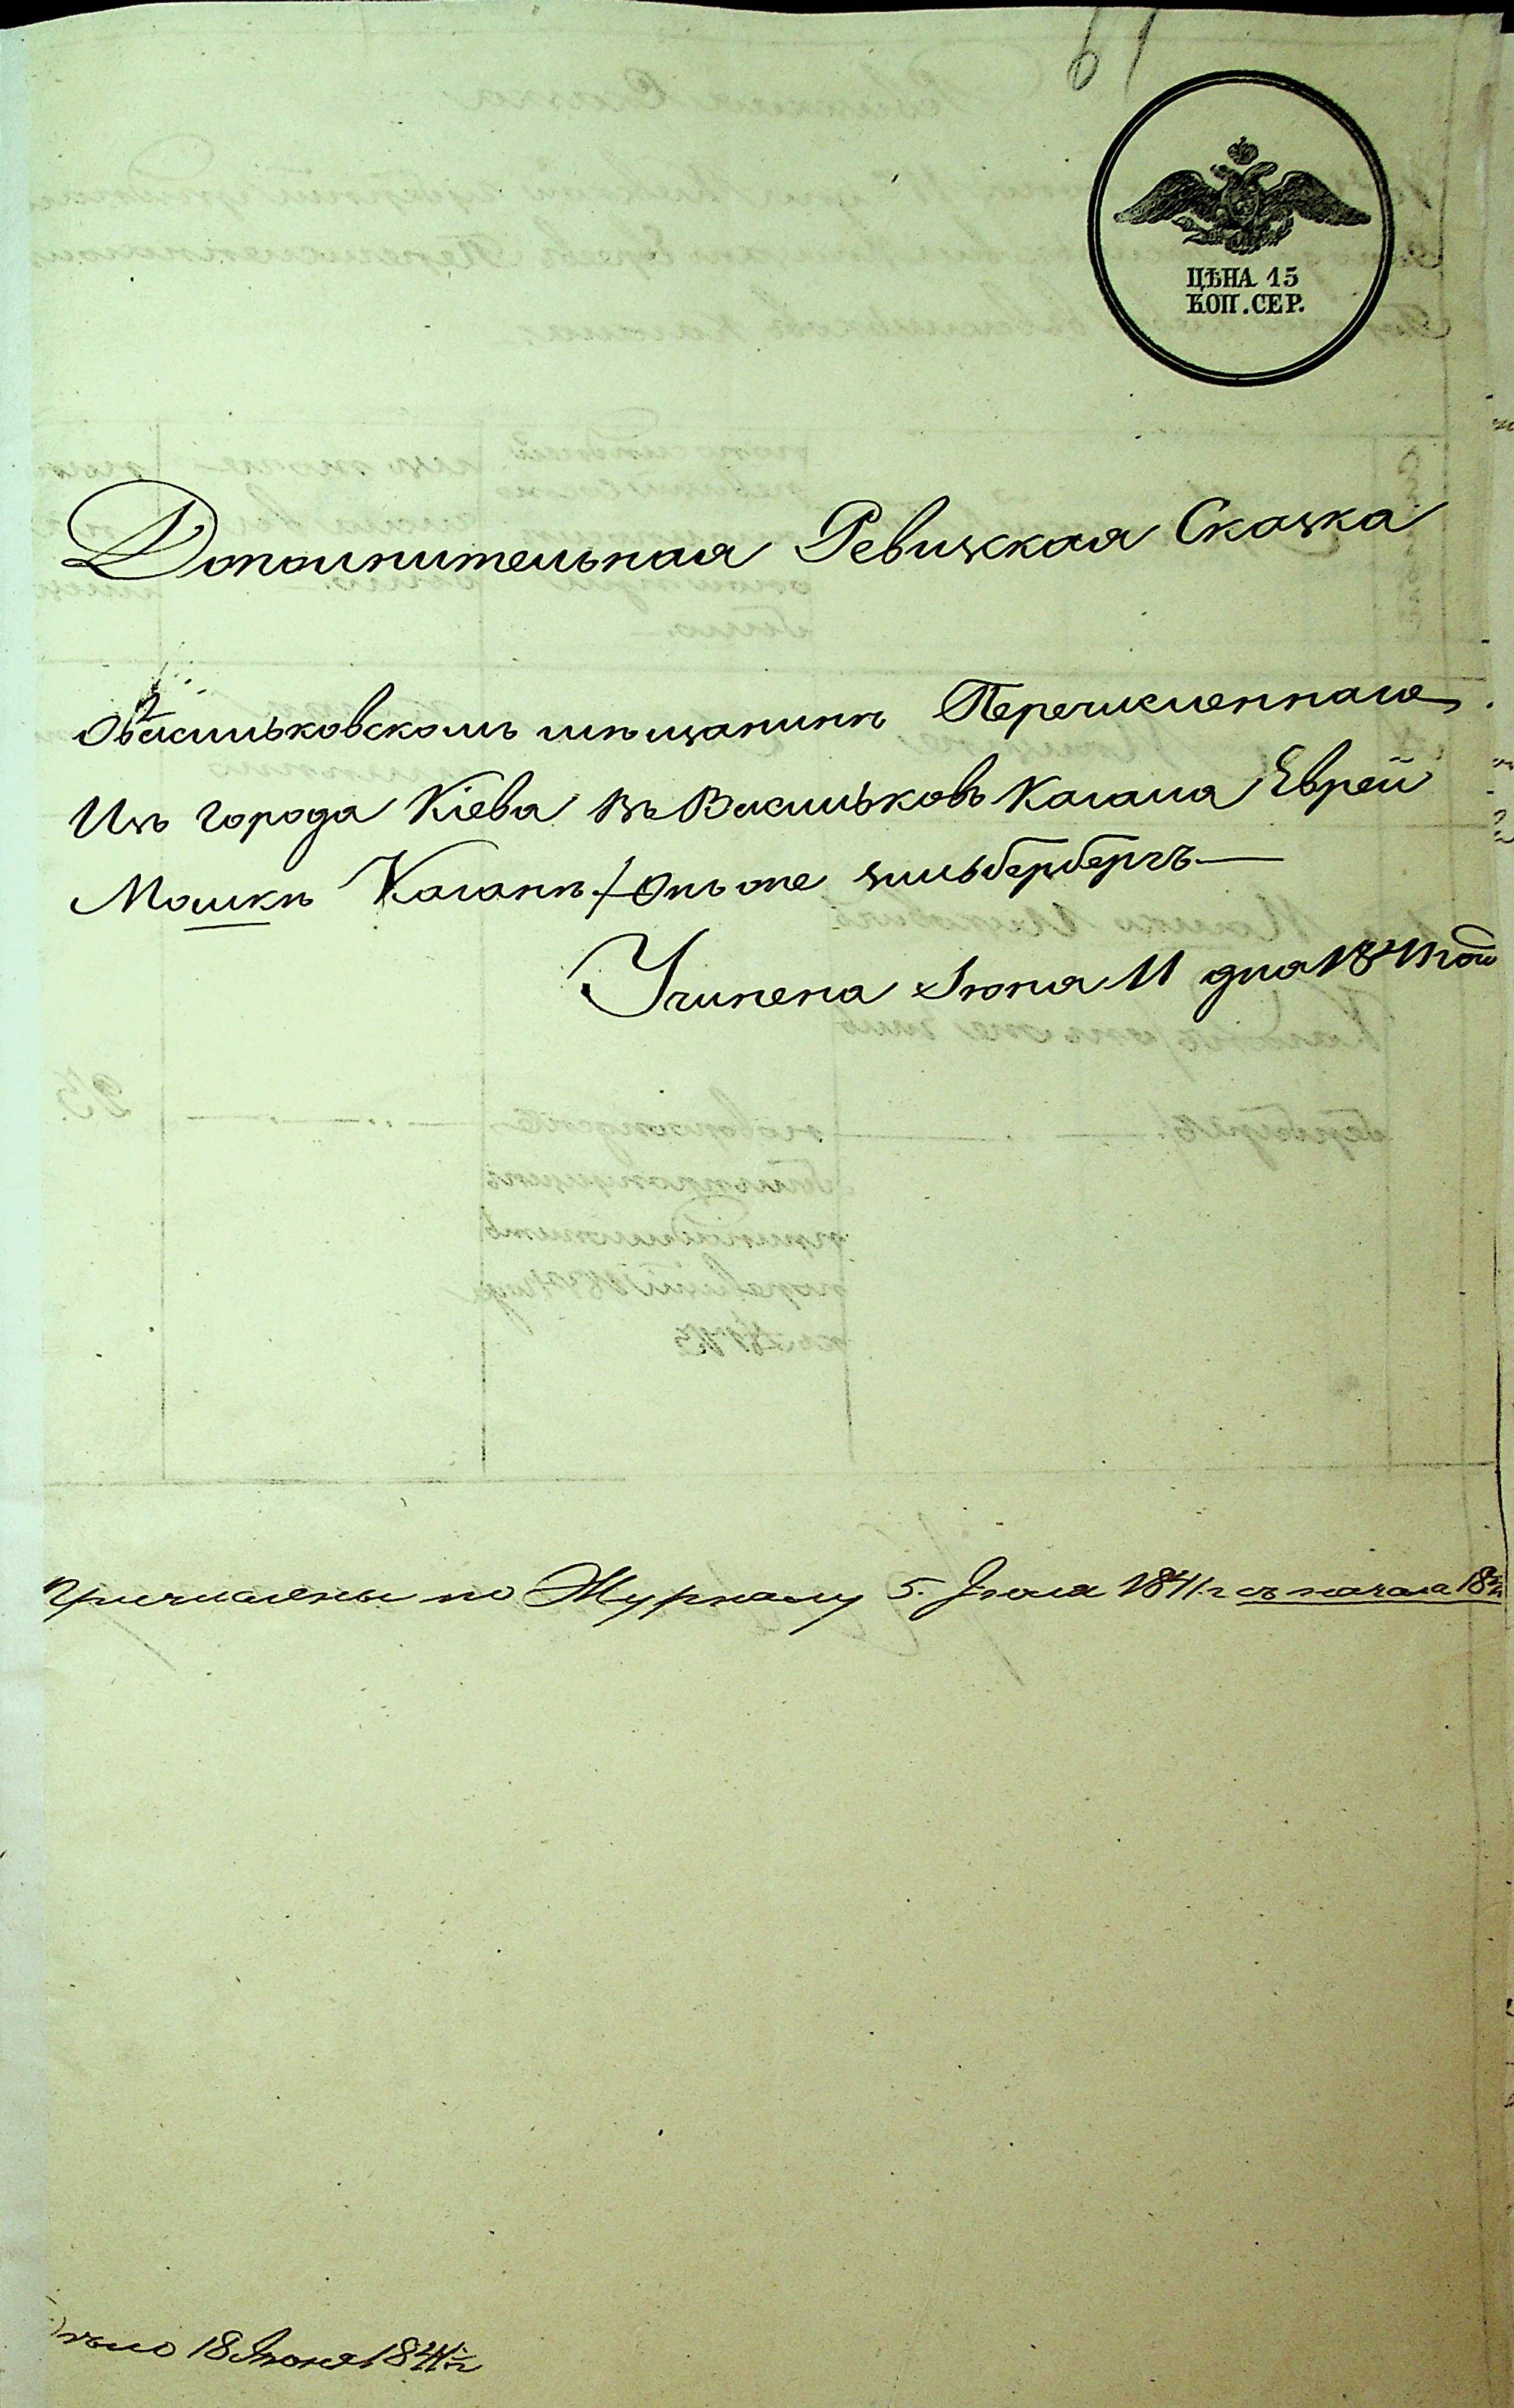 61
ЦѢНА 15
КОП. СЕР.
Дополнительная Ревизская Сказка
О Васильковскомъ мѣщанинѣ Перечисленнаго
Изъ города Кіева въ Васильковъ Кагала Еврей
Мошкѣ Каганѣ / онъ же зильбербергъ
Учинена Іюня 11 дня 1841 года
Причислены по Журналу 5. Іюля 1841 г съ начала 18
18 Іюня 1841 г